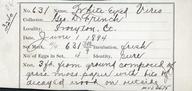 No. 631 Name, White Eyed Vireo
Collector Geo. D. French
Locality Ivoryton, Ct.
Date June 1 1894
Set Mark 631 Incubation fresh
No. of Eggs 4 Identity Sure
Nest, 3 ft. from ground composed of
grass moss, paper with bits of
decayed wood on outside